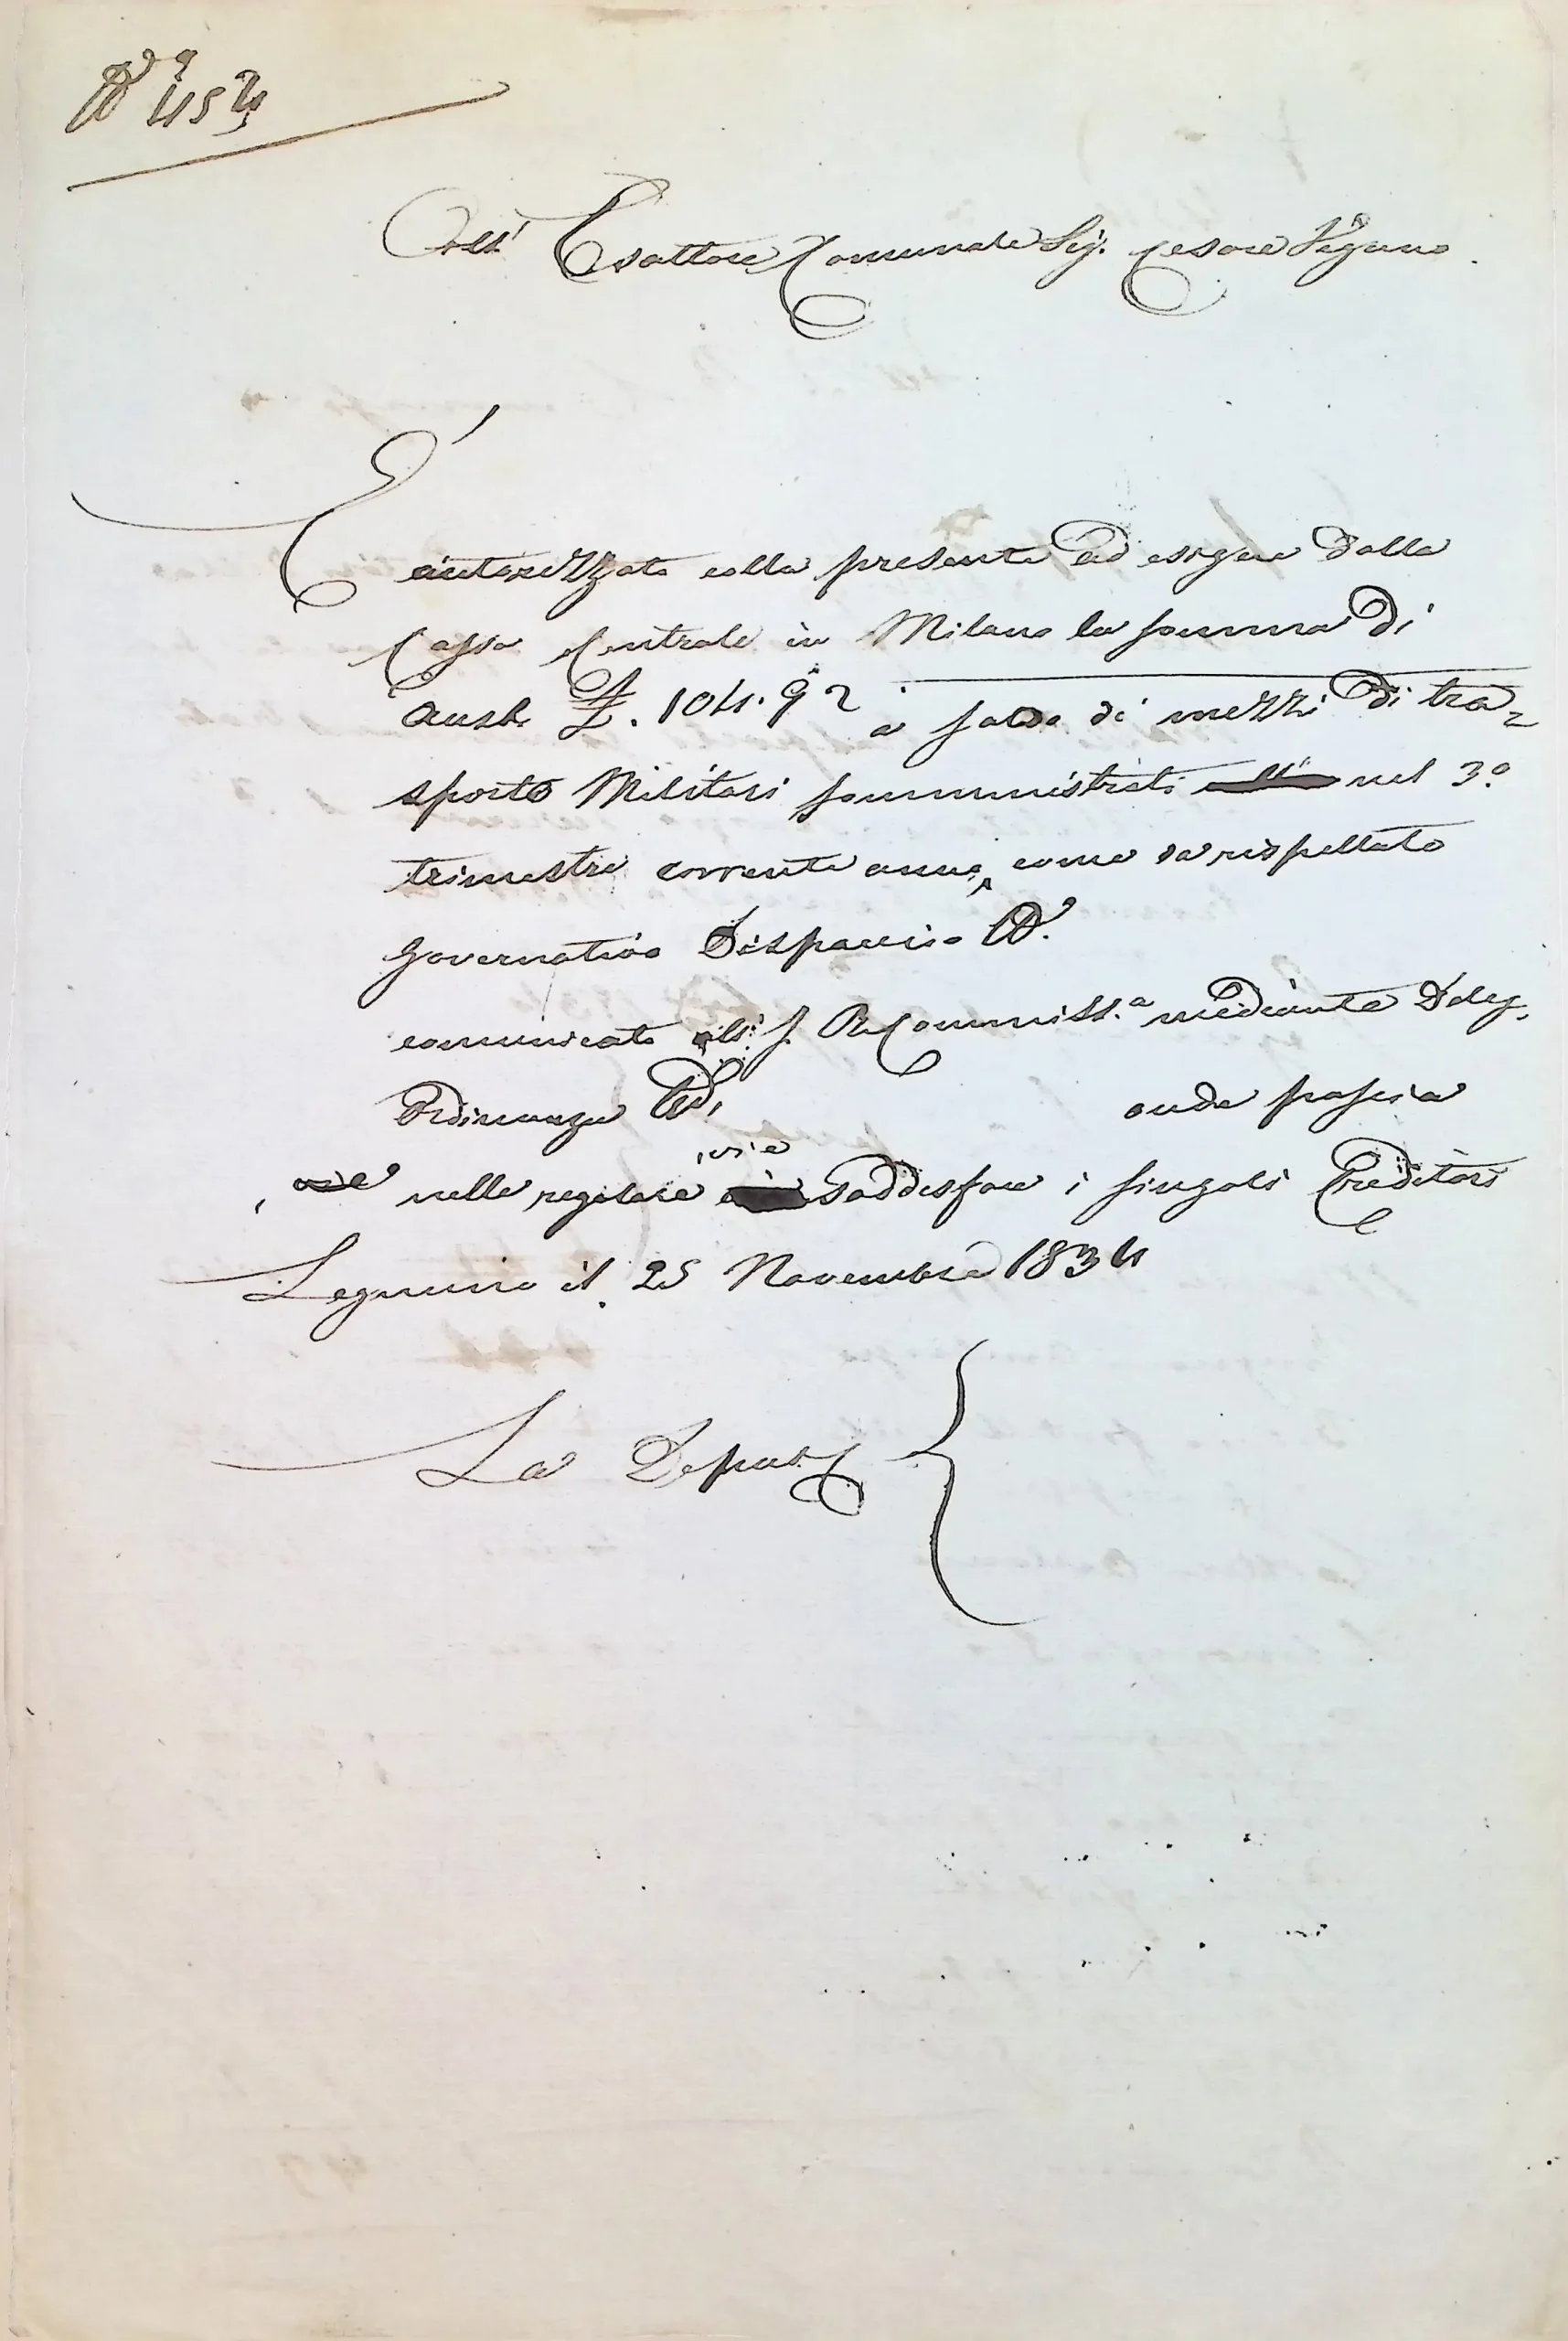 N.° 454
All' Esattore Comunale Sig. Cesare Vegano
È
autorizzato colla presente ad esigere dalla
Cassa Centrale in Milano la somma di
Aust. £. 104. 92 a saldo di mezzi di tra=
sporto Militari somministrati nel 3.°
trimestre corrente anno, come da rispettato
Governativo Dispaccio N.
comunicato all' I. R. Commiss.a mediante Deleg.
Ordinanza N. onde possia
nelle regolare vie soddisfare i singoli Creditori
Legnano il 25 Novembre 1834
La Deput.